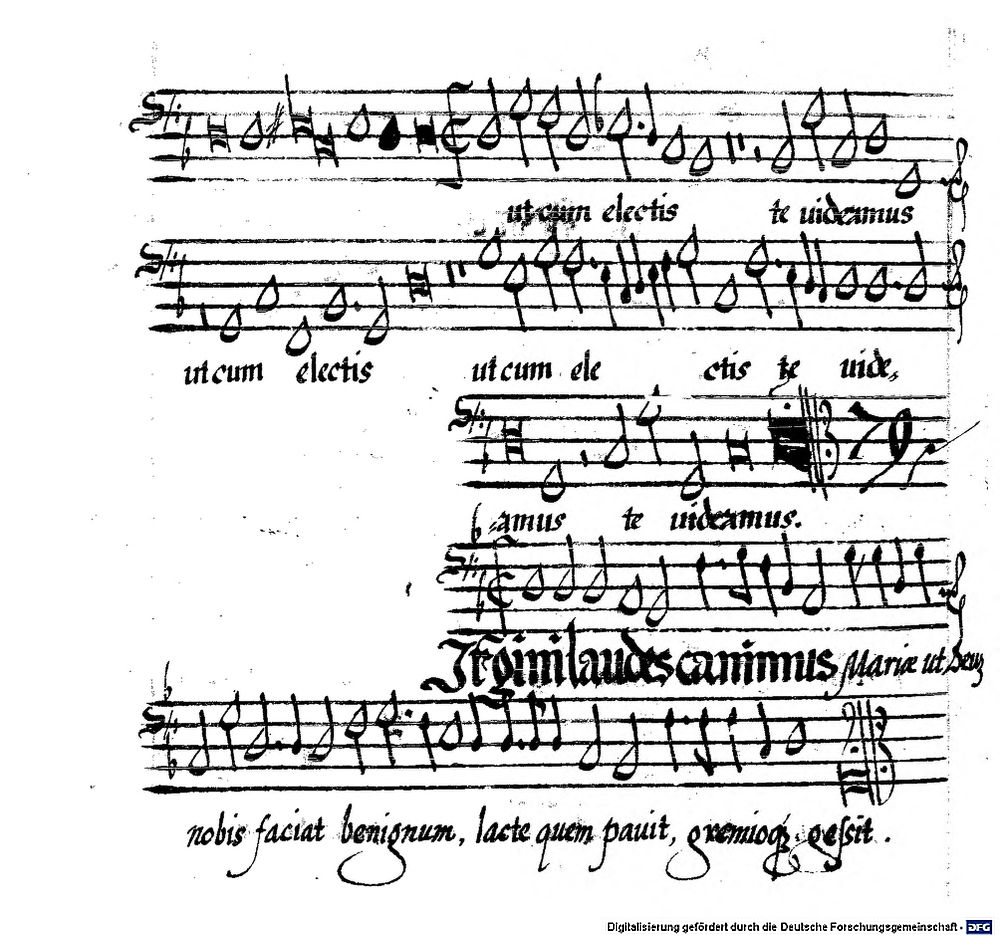 ut cum electis te uideamus
ut cum electis ut cum ele ctis te uide,
79.
-amus te uideamus.
laudes canimus Mariæ ut Deus
nobis faciat benignum, lacte quem pauit, gremioq; gessit.
Digitalisierung gefördert durch die Deutsche Forschungsgemeinschaft - DFG